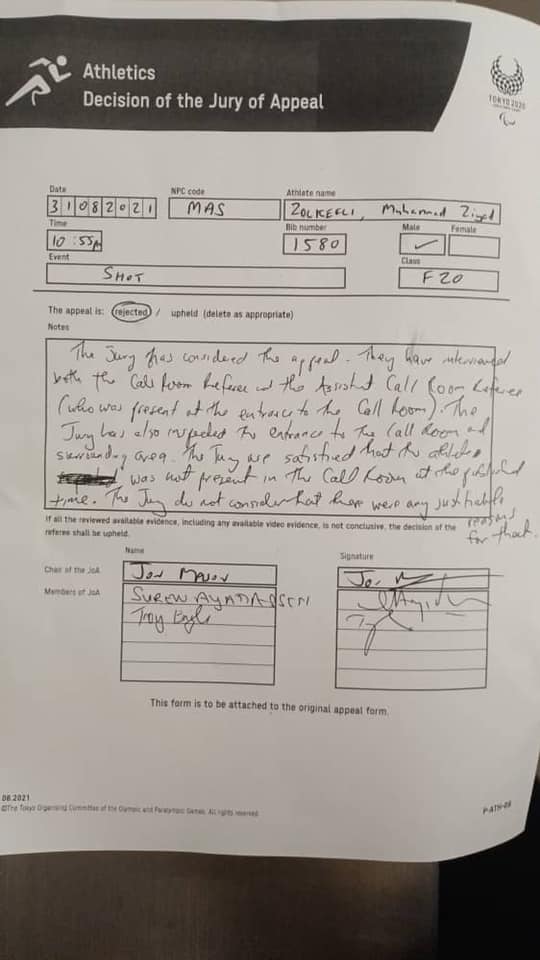 Athletics
Decision of the Jury of Appeal
TOKYO 2020
Date NPC code Athlete name
31082021 MAS ZOLKEFLI, Muhammad Ziyad
Time Bib number Male Female
10:55pm 1580 ✓
Event Class
SHOT F20
The appeal is: rejected / upheld (delete as appropriate)
Notes
The Jury has considered the appeal. They have interviewed
both the Call Room Referee and the Assistant Call Room Referee
(who was present at the entrance to the Call Room). The
Jury has also inspected the entrance to the Call Room and
surrounding area. The Jury are satisfied that the athlete
was not present in the Call Room at the published
time. The Jury do not consider that there were any justifiable
reasons
for that.
If all the reviewed available evidence, including any available video evidence, is not conclusive, the decision of the
referee shall be upheld.
Name Signature
Chair of the JoA Jon
Members of JoA
Troy
This form is to be attached to the original appeal form.
08.2021
©The Tokyo Organising Committee of the Olympic and Paralympic Games. All rights reserved.